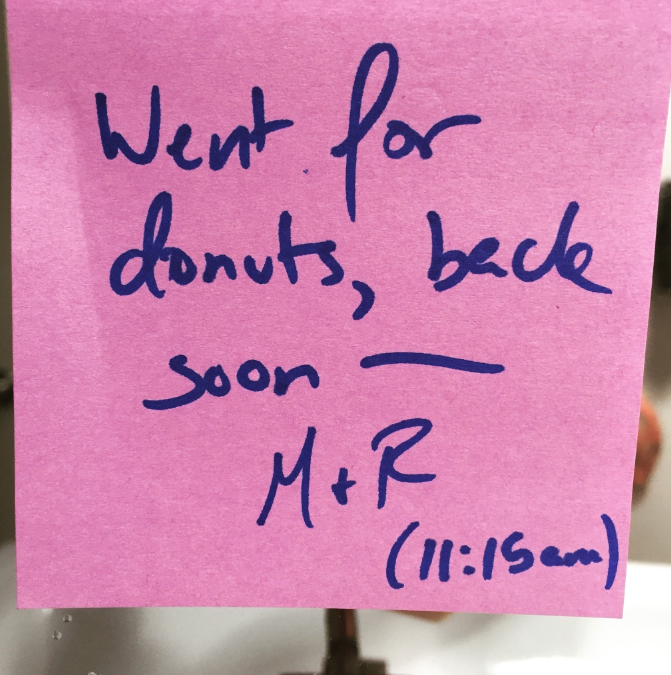 Went for
donuts, back
soon —
M + R
(11:15am)